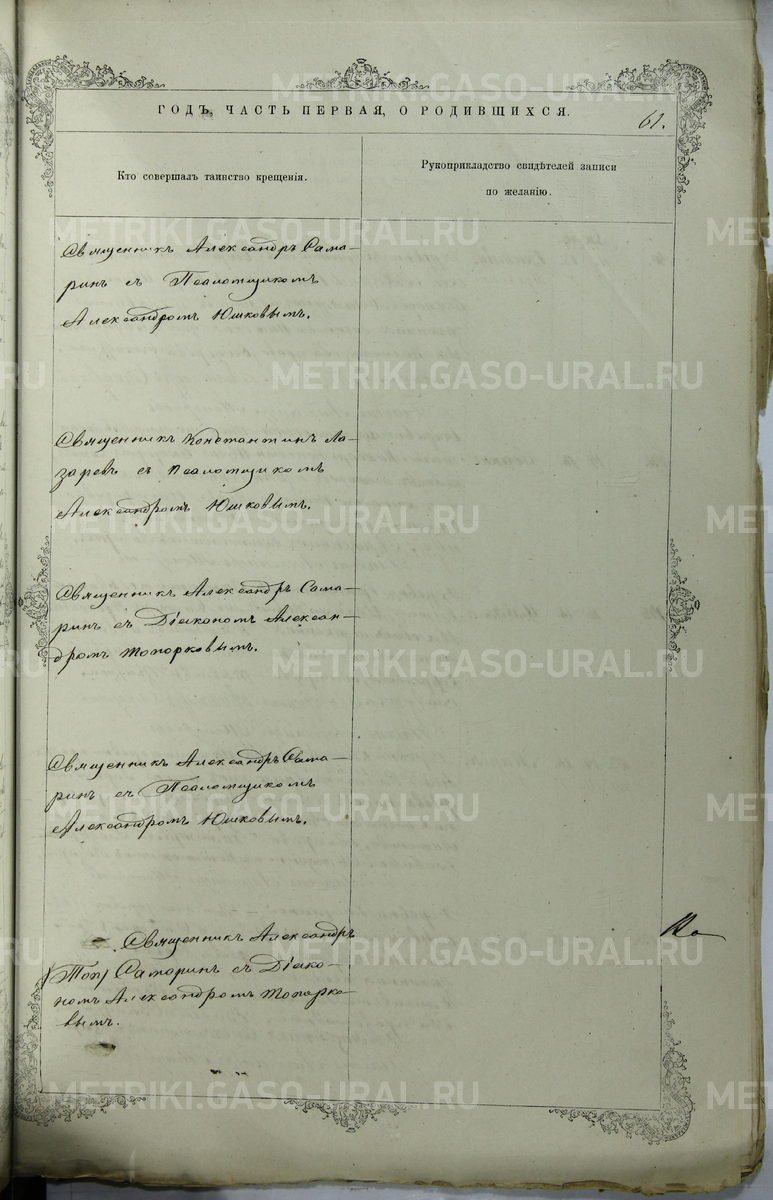 METRIKI.GASO-URAL.RU
ГОДЪ, ЧАСТЬ ПЕРВАЯ, О РОДИВШИХСЯ.
61.
Кто совершалъ таинство крещенія.
Рукоприкладство свидѣтелей записи
по желанію.
Священникъ Александръ Сама-
ринъ съ Псаломщикомъ
Александромъ Юшковымъ.
Священникъ Константинъ Ла-
заревъ съ Псаломщикомъ
Александромъ Юшковымъ.
Священникъ Александръ Сама-
ринъ съ Діакономъ Алексан-
дромъ Топорковымъ.
Священникъ Александръ Сама-
ринъ съ Псаломщикомъ
Александромъ Юшковымъ.
Священникъ Александръ
(Топ) Самаринъ съ Діако-
номъ Александромъ Топорко-
вымъ.